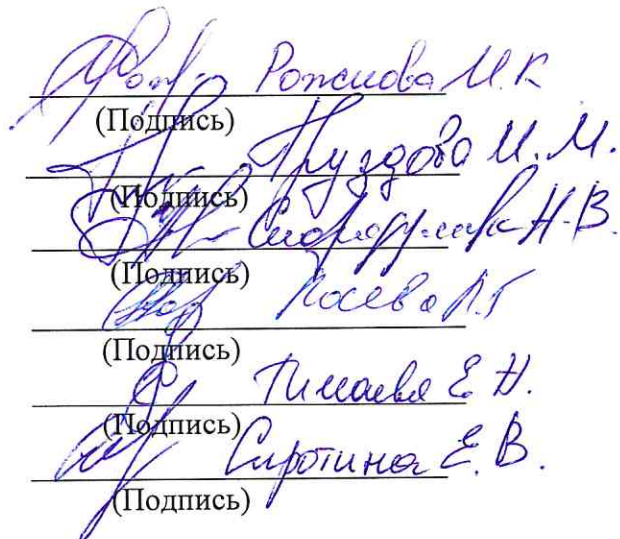 Рожнова И.К
(Подпись)
Груздова И.М.
(Подпись)
Н.В.
(Подпись)
Носева Л.Г
(Подпись)
Тимаева Е.Н.
(Подпись)
Сиротина Е.В.
(Подпись)